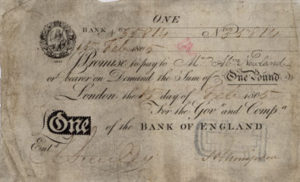 ONE
BANK No 25814 No 25814
1805 Feb 1805
I Promise to pay to Mr. Abm. Newland
or bearer on Demand the Sum of One Pound
London the day of Feb 1805
For the Govr. and Compa.
One of the BANK OF ENGLAND
Entd.